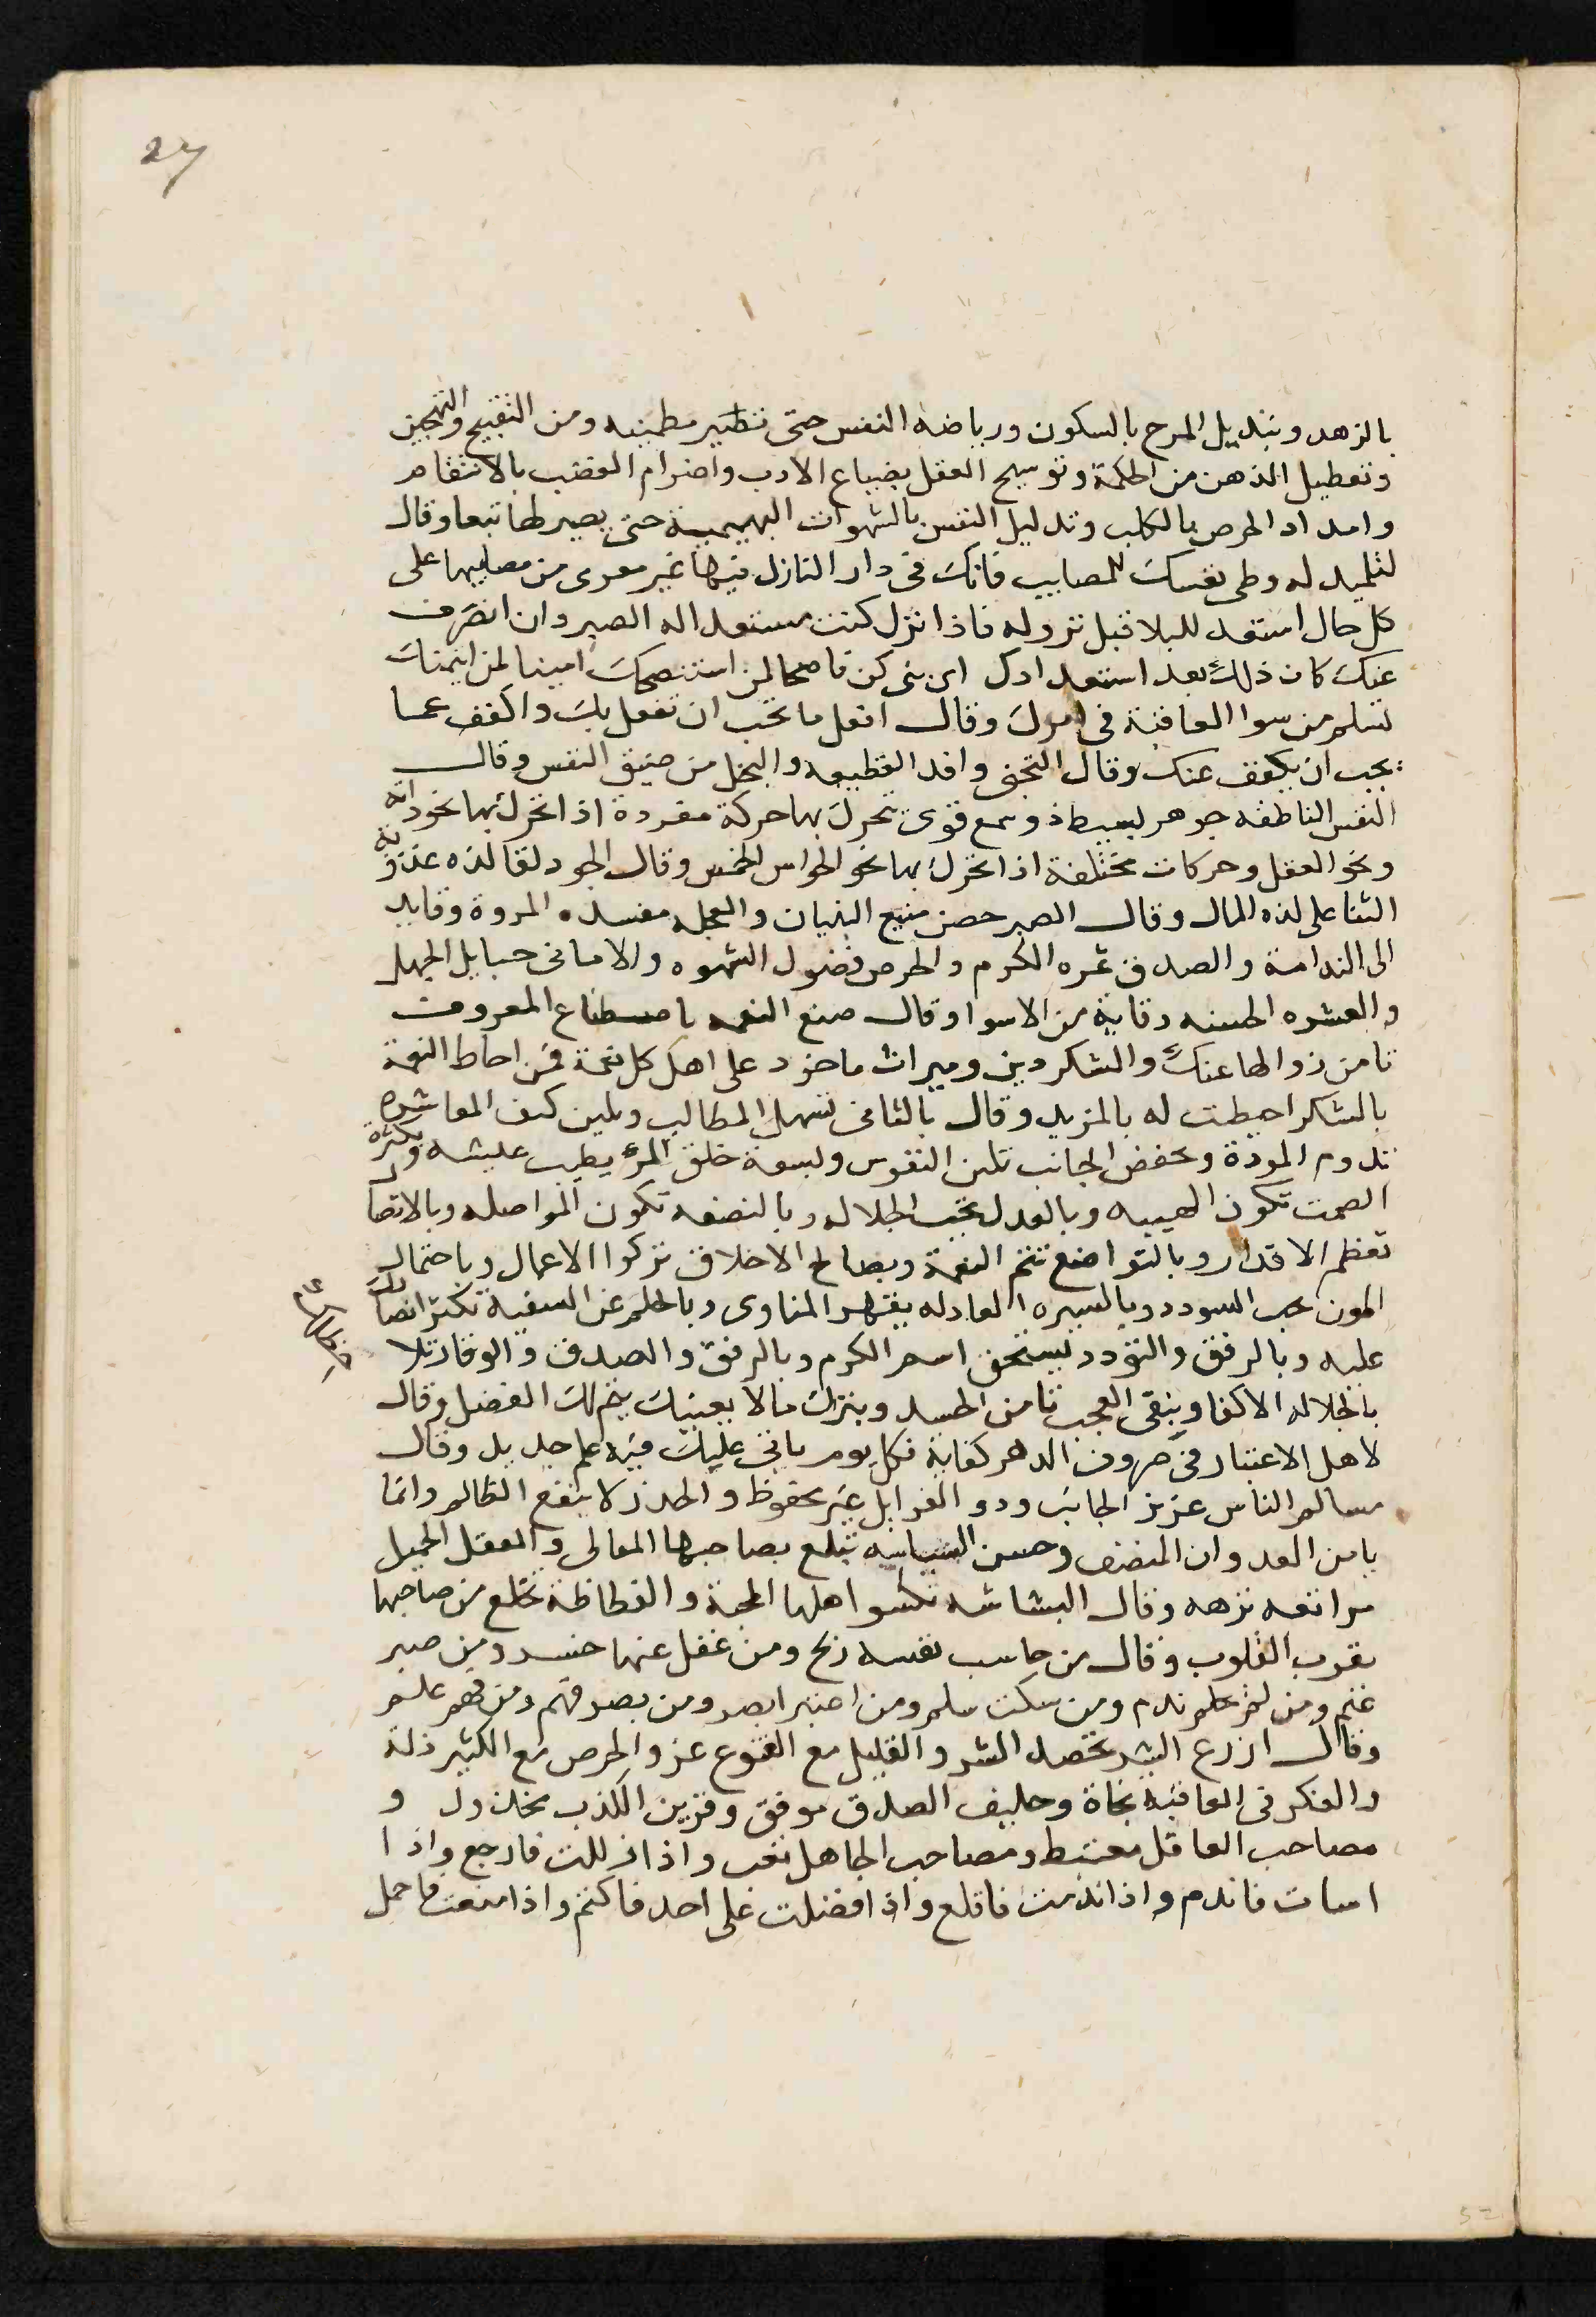 27
بالزهد وبتديل المرح بالسكون ورياضه النفس حتى تطير مطمينه ومن التقبيح والتهجين
وتعطيل الذهن من الحكمة وتوسيخ العقل بضياع الادب واضرام الغضب بالانتقام
وامداد الحرص بالكلب وتدليل النفس بالشهوات البهيمية حتى يصير لها تبعا وقال
لتلميد له وطى نفسك للمصايب فانك فى دار النازل فيها غير معرى من مصايبها على
كل حال استعد للبلا قبل نزوله فاذا نزل كنت مستعدا له الصبر وان انصرف
عنك كان ذلك بعد استعدادك اى بنى كن ناصحا لمن استنصحك امينا لمن ايتمنك
تسلم من سوا العاقبة فى امرك وقال افعل ما تحب ان تفعل بك واكفف عما
يجب ان يكفف عنك وقال التجنى وافد القطيعه والبخل من ضيق النفس وقال
النفس الناطقه جوهر بسيط ذو سبع قوى تتحرك بها حركة مفردة اذا تحرك بها نحو ذاته
ونحو العقل وحركات مختلفة اذا تحرك بها نحو الحواس الخمس وقال الجود لقا لذه
الثنا على لذه المال وقال الصبر حصن منيع البنيان والعجله مفسده المروة وقايد
الى الندامة والصدق ثمره الكرم والحرص فضول الشهوه والامانى حبايل الجهل
والعشره الحسنه وقاية من الاسوا وقال صنع النعمه باصطناع المعروف
تامن زوالها عنك والشكر دين وميراث ماخود على اهل كل نعمة فمن احاط النعمة
بالشكر احيطت له بالمزيد وقال بالتانى تسهل المطالب وبلين كنف المعاشره
تدوم المودة وبخفض الجانب تلين النفوس وبسعة خلق المرء يطيب عيشه وبكثرة
الصمت تكون الهيبه وبالعدل تجب الجلاله وبالنصفه تكون المواصله وبالاتضا
تعظم الاقدار وبالتواضع تتم النعمة وبصالح الاخلاق تزكوا الاعمال وباحتمال
المون يجب السودد وبالسيره العادله يقهر المناوى وبالحلم عن السفيه تكثر انصارك
عليه وبالرفق والتودد يستحق اسم الكرم وبالرفق والصدق والوفا
بالجلاله الاكفا وبنقى العجب تامن الحسد وبترك مالا يعينك يتم لك الفضل وقال
لاهل الاعتبار فى صروف الدهر كفاية فكل يوم ياتى عليك فيه علم جديد وقال
مسالم الناس عزيز الجانب ودو الغرايل غير محفوظ والحدر لا ينفع الظالم وانما
يامن العدوان المنصف وحسن السياسه تبلغ بصاحبها المعالى والعقل الجميل
مراتعه نزهه وقال البشاشه تكسوا اهلها المحبة والفظاظة تخلع من صاحبها
بقرب القلوب وقال من حاسب نفسه ربح ومن غفل عنها خسر ومن صبر
غنم ومن لم يحلم ندم ومن سكت سلم ومن اعتبر ابصر ومن بصر فهم ومن فهم علم
وقال ازرع البشر تحصد الشر والقليل مع القنوع عز والحرص مع الكثير ذلة
والفكر فى العاقبة نجاة وحليف الصدق موفق وقرين الكذب مخذول و
مصاحب العاقل مغتبط ومصاحب الجاهل تعب واذا زللت فارجع واذا
اسات فاندم واذا ندمت فاقلع واذا افضلت على احد فاكتم واذا منعت فاحمل